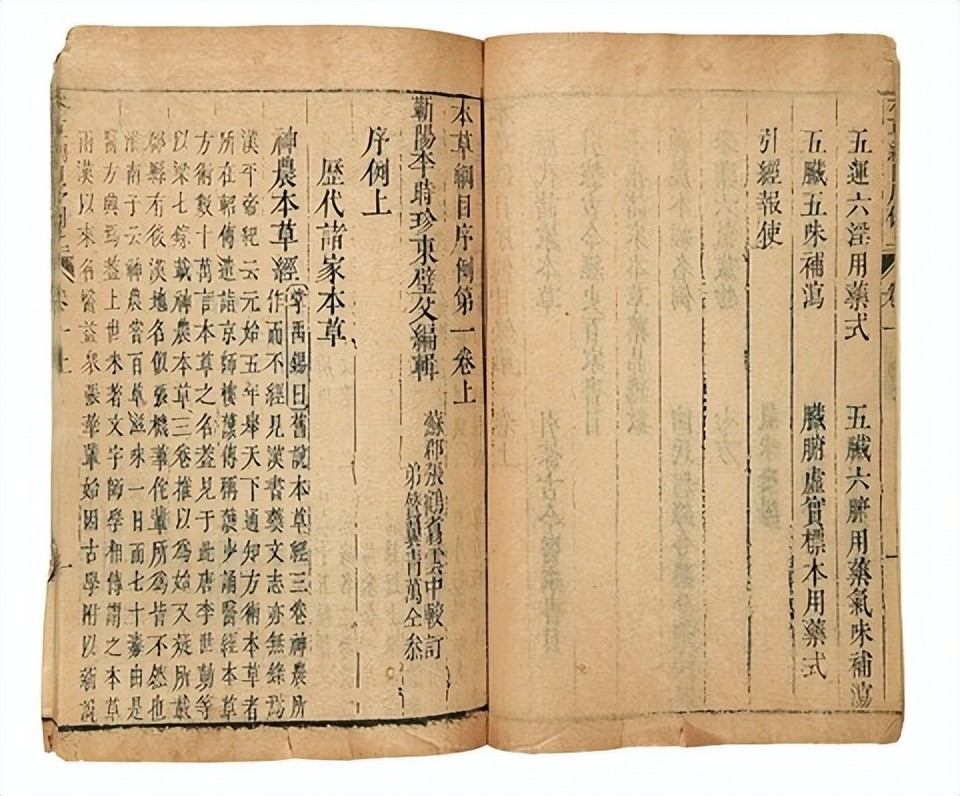 五運六淫用藥式　五臟六腑用藥氣味補瀉
五臟五味補瀉　臟腑虛實標本用藥式
引經報使
本草綱目序例第一卷上
蘄陽李時珍東璧父編輯
蘇郡張鶴翥雲中較訂
序例上
歷代諸家本草
神農本草經
掌禹錫曰舊說本草經三卷神農所
作而不經見漢書藝文志亦無錄焉
漢平帝紀云元始五年舉天下通知方術本草者
所在軺傳遣詣京師樓護傳稱護少誦醫經本草
方術數十萬言本草之名蓋見于此唐李世勣等
以梁七錄載神農本草三卷推以為始又疑所載
郡縣有後漢地名似張機華佗輩所為皆不然也
淮南子云神農嘗百草滋味一日而七十毒由是
醫方興焉蓋上世未著文字師學相傳謂之本草
兩漢以來名醫益眾張華輩始因古學附以新說